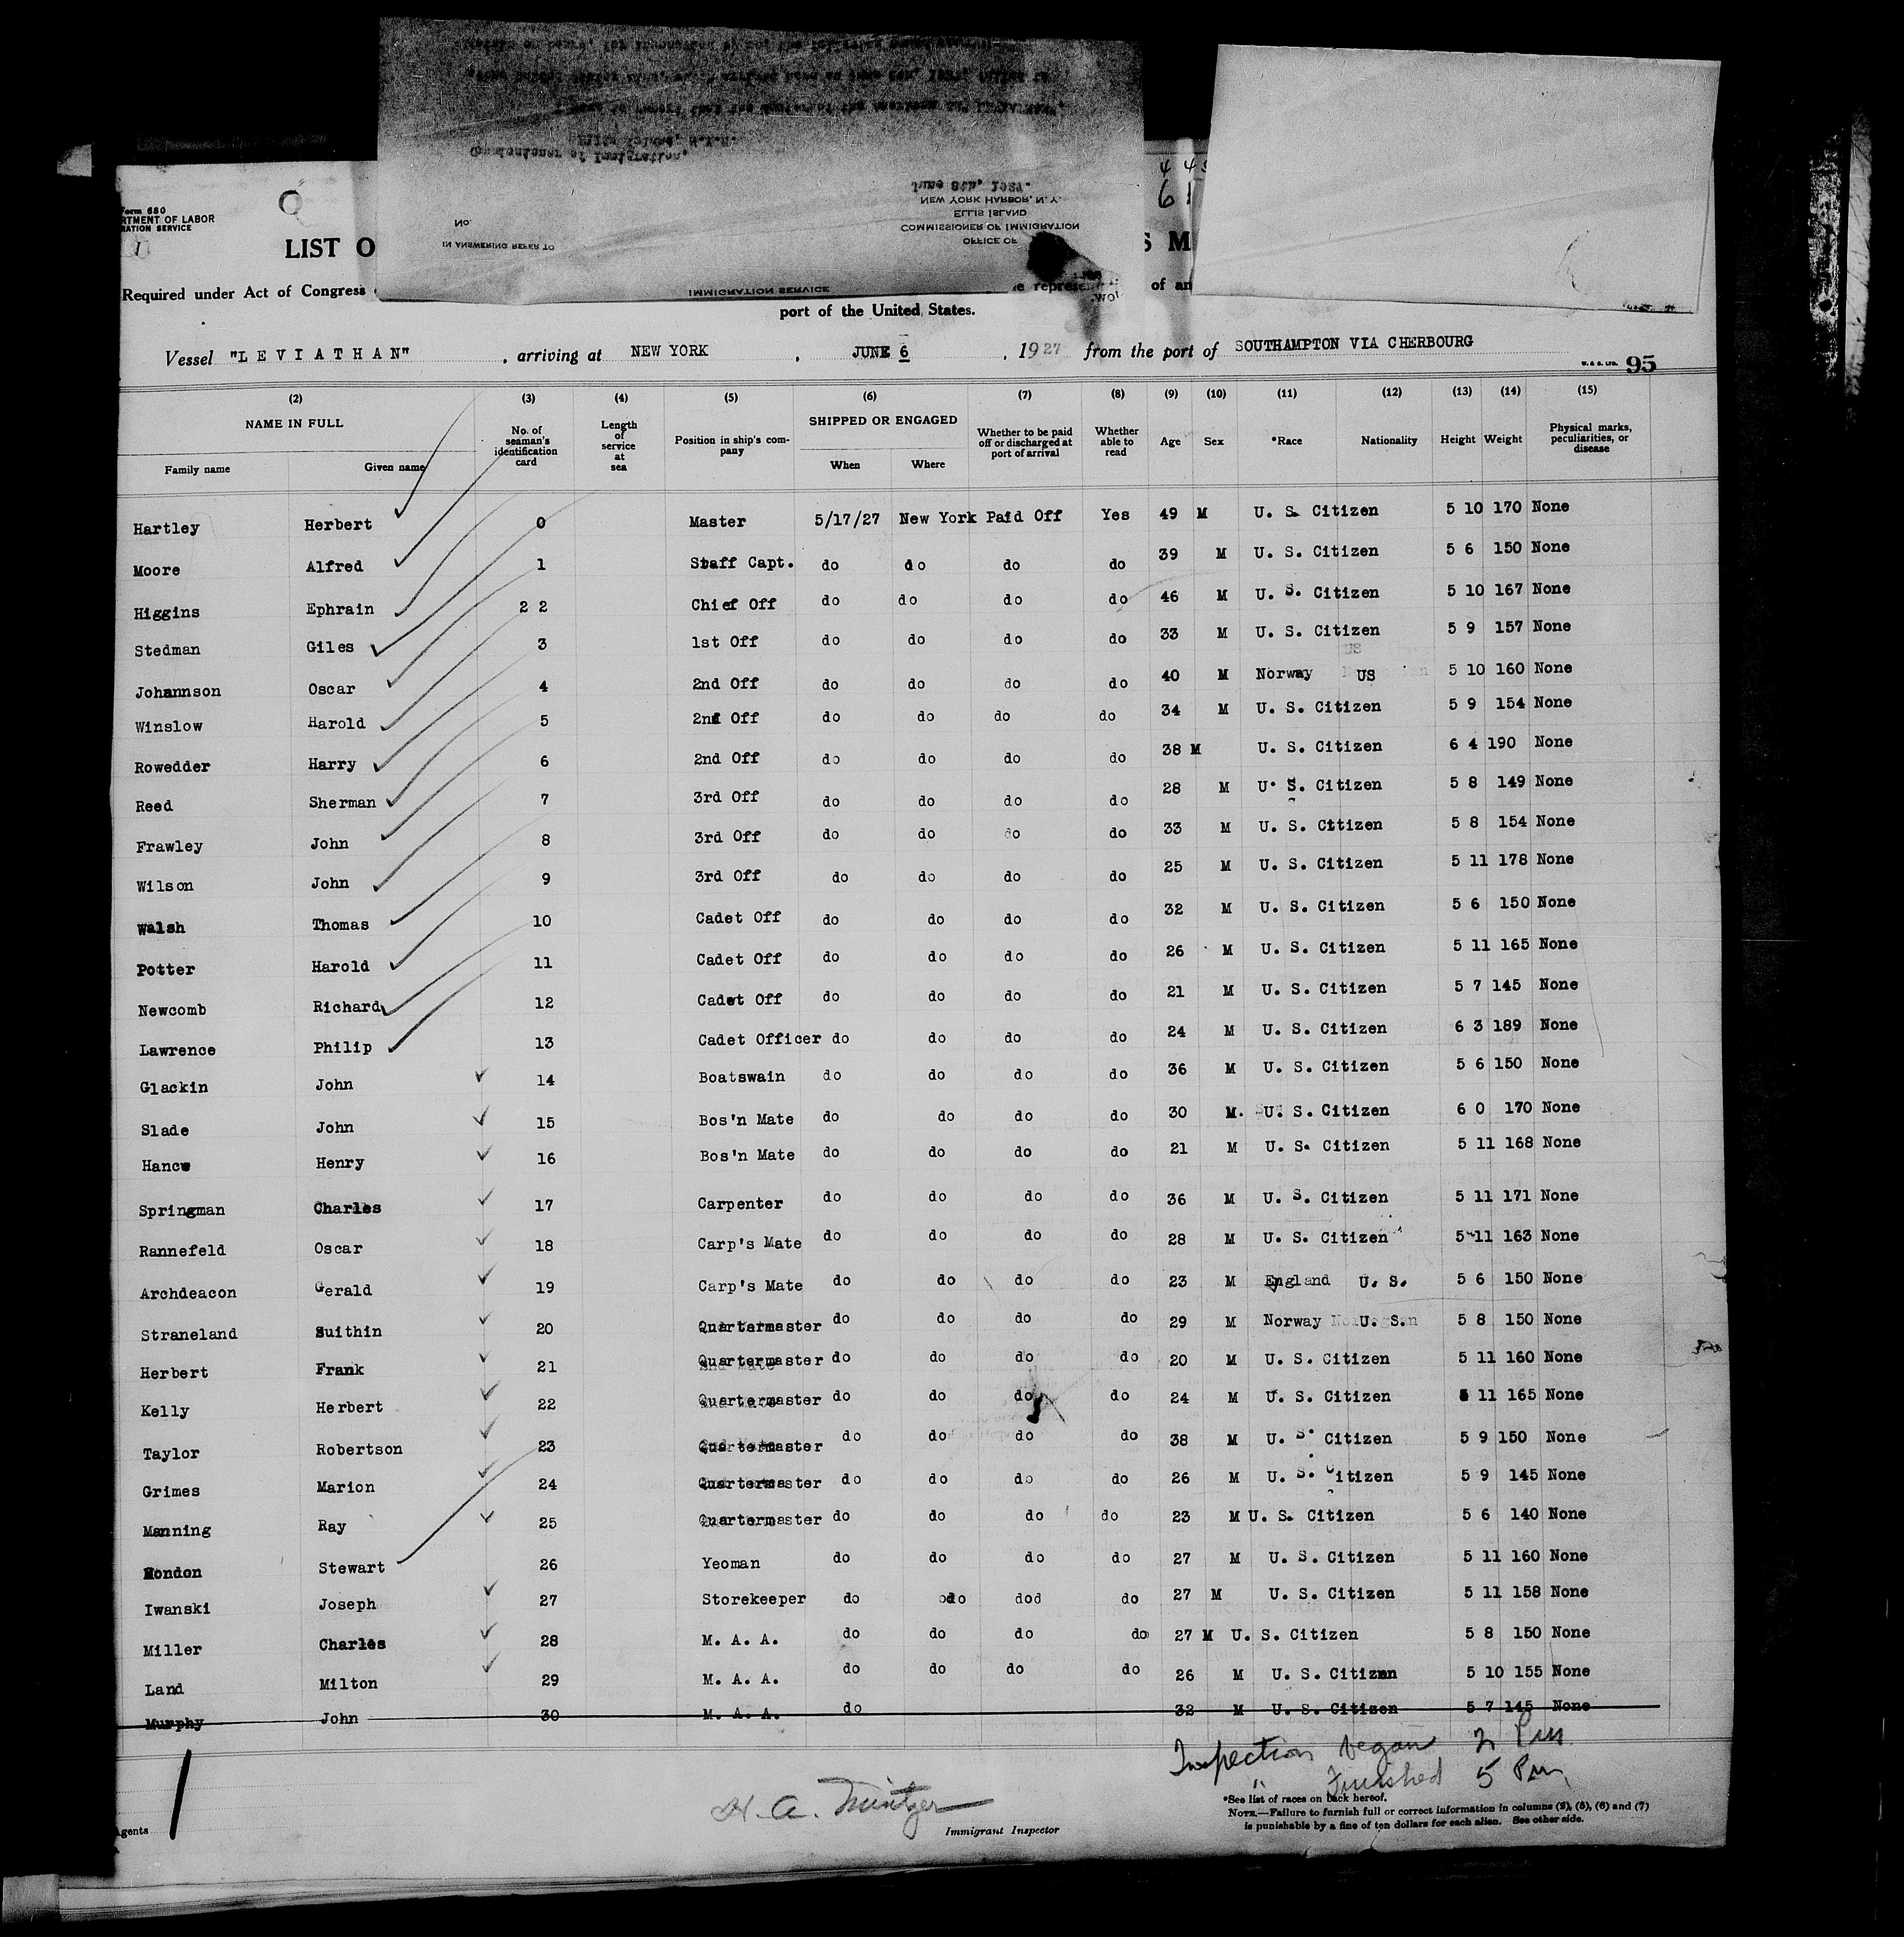 Form 680
RTMENT OF LABOR
RATION SERVICE
Commissioner of Immigration,
June 8th, 1927.
NEW YORK HARBOR, N. Y.
ELLIS ISLAND
COMMISSIONER OF IMMIGRATION
OFFICE OF
No.
IN ANSWERING REFER TO
IMMIGRATION SERVICE
LIST O S M
Required under Act of Congress of an
port of the United States.
Vessel "LEVIATHAN", arriving at NEW YORK, JUNE 6, 1927 from the port of SOUTHAMPTON VIA CHERBOURG
95
(2) (3) (4) (5) (6) (7) (8) (9) (10) (11) (12) (13) (14) (15)
NAME IN FULL No. of seaman's identification card Length of service at sea Position in ship's company SHIPPED OR ENGAGED Whether to be paid off or discharged at port of arrival Whether able to read Age Sex *Race Nationality Height Weight Physical marks, peculiarities, or disease
Family name Given name When Where
Hartley Herbert 0 Master 5/17/27 New York Paid Off Yes 49 M U. S. Citizen 5 10 170 None
Moore Alfred 1 Staff Capt. do do do do 39 M U. S. Citizen 5 6 150 None
Higgins Ephrain 2 2 Chief Off do do do do 46 M U. S. Citizen 5 10 167 None
Stedman Giles 3 1st Off do do do do 33 M U. S. Citizen 5 9 157 None
Johannson Oscar 4 2nd Off do do do do 40 M Norway US 5 10 160 None
Winslow Harold 5 2nd Off do do do do 34 M U. S. Citizen 5 9 154 None
Rowedder Harry 6 2nd Off do do do do 38 M U. S. Citizen 6 4 190 None
Reed Sherman 7 3rd Off do do do do 28 M U. S. Citizen 5 8 149 None
Frawley John 8 3rd Off do do do do 33 M U. S. Citizen 5 8 154 None
Wilson John 9 3rd Off do do do do 25 M U. S. Citizen 5 11 178 None
Walsh Thomas 10 Cadet Off do do do do 32 M U. S. Citizen 5 6 150 None
Potter Harold 11 Cadet Off do do do do 26 M U. S. Citizen 5 11 165 None
Newcomb Richard 12 Cadet Off do do do do 21 M U. S. Citizen 5 7 145 None
Lawrence Philip 13 Cadet Officer do do do do 24 M U. S. Citizen 6 3 189 None
Glackin John 14 Boatswain do do do do 36 M U. S. Citizen 5 6 150 None
Slade John 15 Bos'n Mate do do do do 30 M. U. S. Citizen 6 0 170 None
Hance Henry 16 Bos'n Mate do do do do 21 M U. S. Citizen 5 11 168 None
Springman Charles 17 Carpenter do do do do 36 M U. S. Citizen 5 11 171 None
Rannefeld Oscar 18 Carp's Mate do do do do 28 M U. S. Citizen 5 11 163 None
Archdeacon Gerald 19 Carp's Mate do do do do 23 M England U. S. 5 6 150 None
Straneland Suithin 20 Quartermaster do do do do 29 M Norway U. S. 5 8 150 None
Herbert Frank 21 Quartermaster do do do do 20 M U. S. Citizen 5 11 160 None
Kelly Herbert 22 Quartermaster do do do do 24 M U. S. Citizen 5 11 165 None
Taylor Robertson 23 Quartermaster do do do do 38 M U. S. Citizen 5 9 150 None
Grimes Marion 24 Quartermaster do do do do 26 M U. S. Citizen 5 9 145 None
Manning Ray 25 Quartermaster do do do do 23 M U. S. Citizen 5 6 140 None
Stewart 26 Yeoman do do do do 27 M U. S. Citizen 5 11 160 None
Iwanski Joseph 27 Storekeeper do odo dod do 27 M U. S. Citizen 5 11 158 None
Miller Charles 28 M. A. A. do do do do 27 M U. S. Citizen 5 8 150 None
Land Milton 29 M. A. A. do do do do 26 M U. S. Citizen 5 10 155 None
Murphy John 30 M. A. A. do 32 M U. S. Citizen 5 7 145 None
Inspection began 2 Pm
" Finished 5 Pm
H. A. Mintzer
Immigrant Inspector
Agents
*See list of races on back hereof.
NOTE.—Failure to furnish full or correct information in columns (2), (5), (6) and (7)
is punishable by a fine of ten dollars for each alien. See other side.